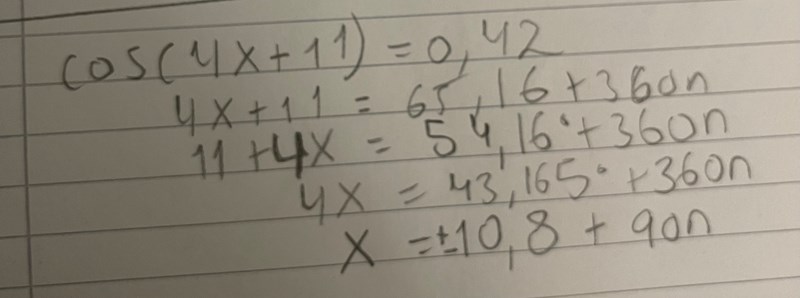 cos(4x+11) = 0,42
4x+11 = 65,16+360n
11+4x = 54,16°+360n
4x = 43,165°+360n
x =±10,8 + 90n